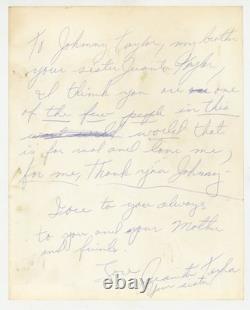 To Johnny Taylor, my brother
your sister Juanita Taylor,
I think you are one
of the few people in this
world that
is for real and love me,
for me, Thank you Johnny-
Love to you always
to you and your Mother
and friends.
Love Juanita Taylor
your sister